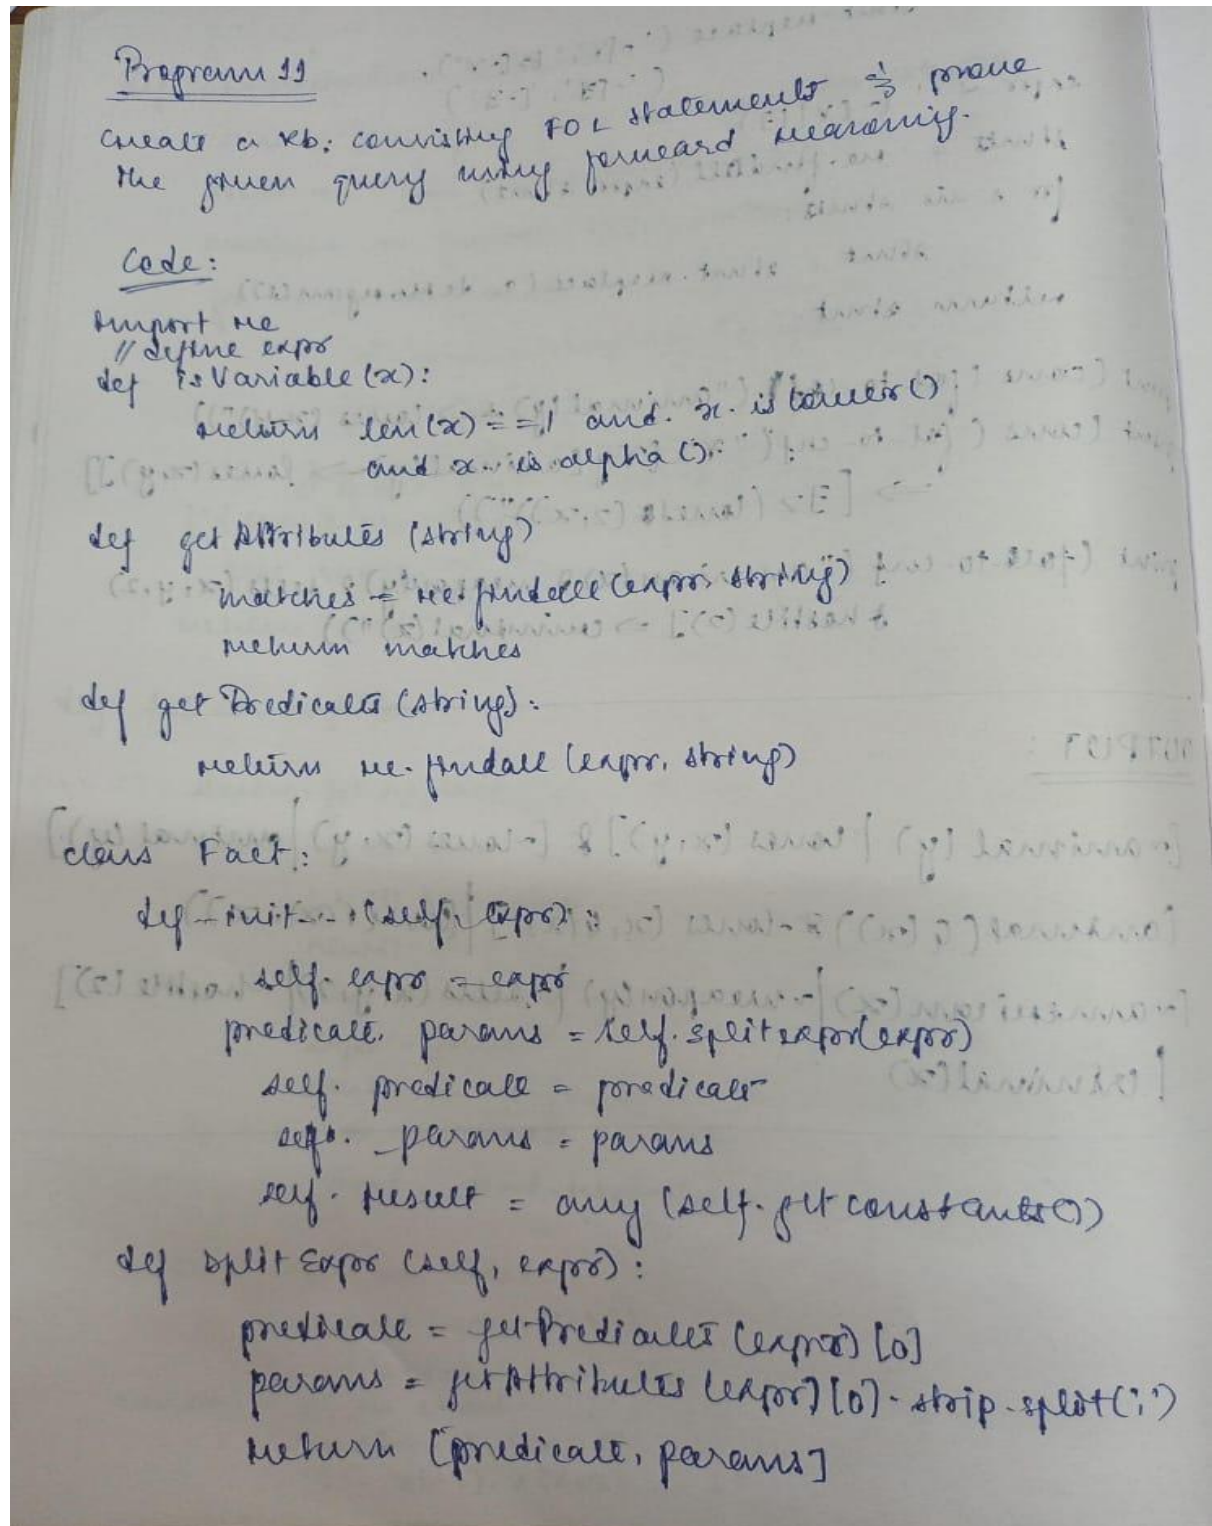 Program 11
Create a kb: consisting FOL statements & prove
the given query using forward reasoning.
Code:
import re
// define expr
def isVariable (x):
return len(x) == 1 and x. islower()
and x. is alpha ().
def getAttributes (string)
matches = re.findall (expr, string)
return matches
def getPredicates (string):
return re.findall (expr, string)
class Fact:
def __init__ (self, expr):
self. expr = expr
predicate, params = self.splitexpr(expr)
self. predicate = predicate
self. params = params
self. result = any (self. get constants())
def split Expr (self, expr):
predicate = getPredicates (expr) [0]
params = getAttributes (expr) [0]. strip. split (',')
return [predicate, params]